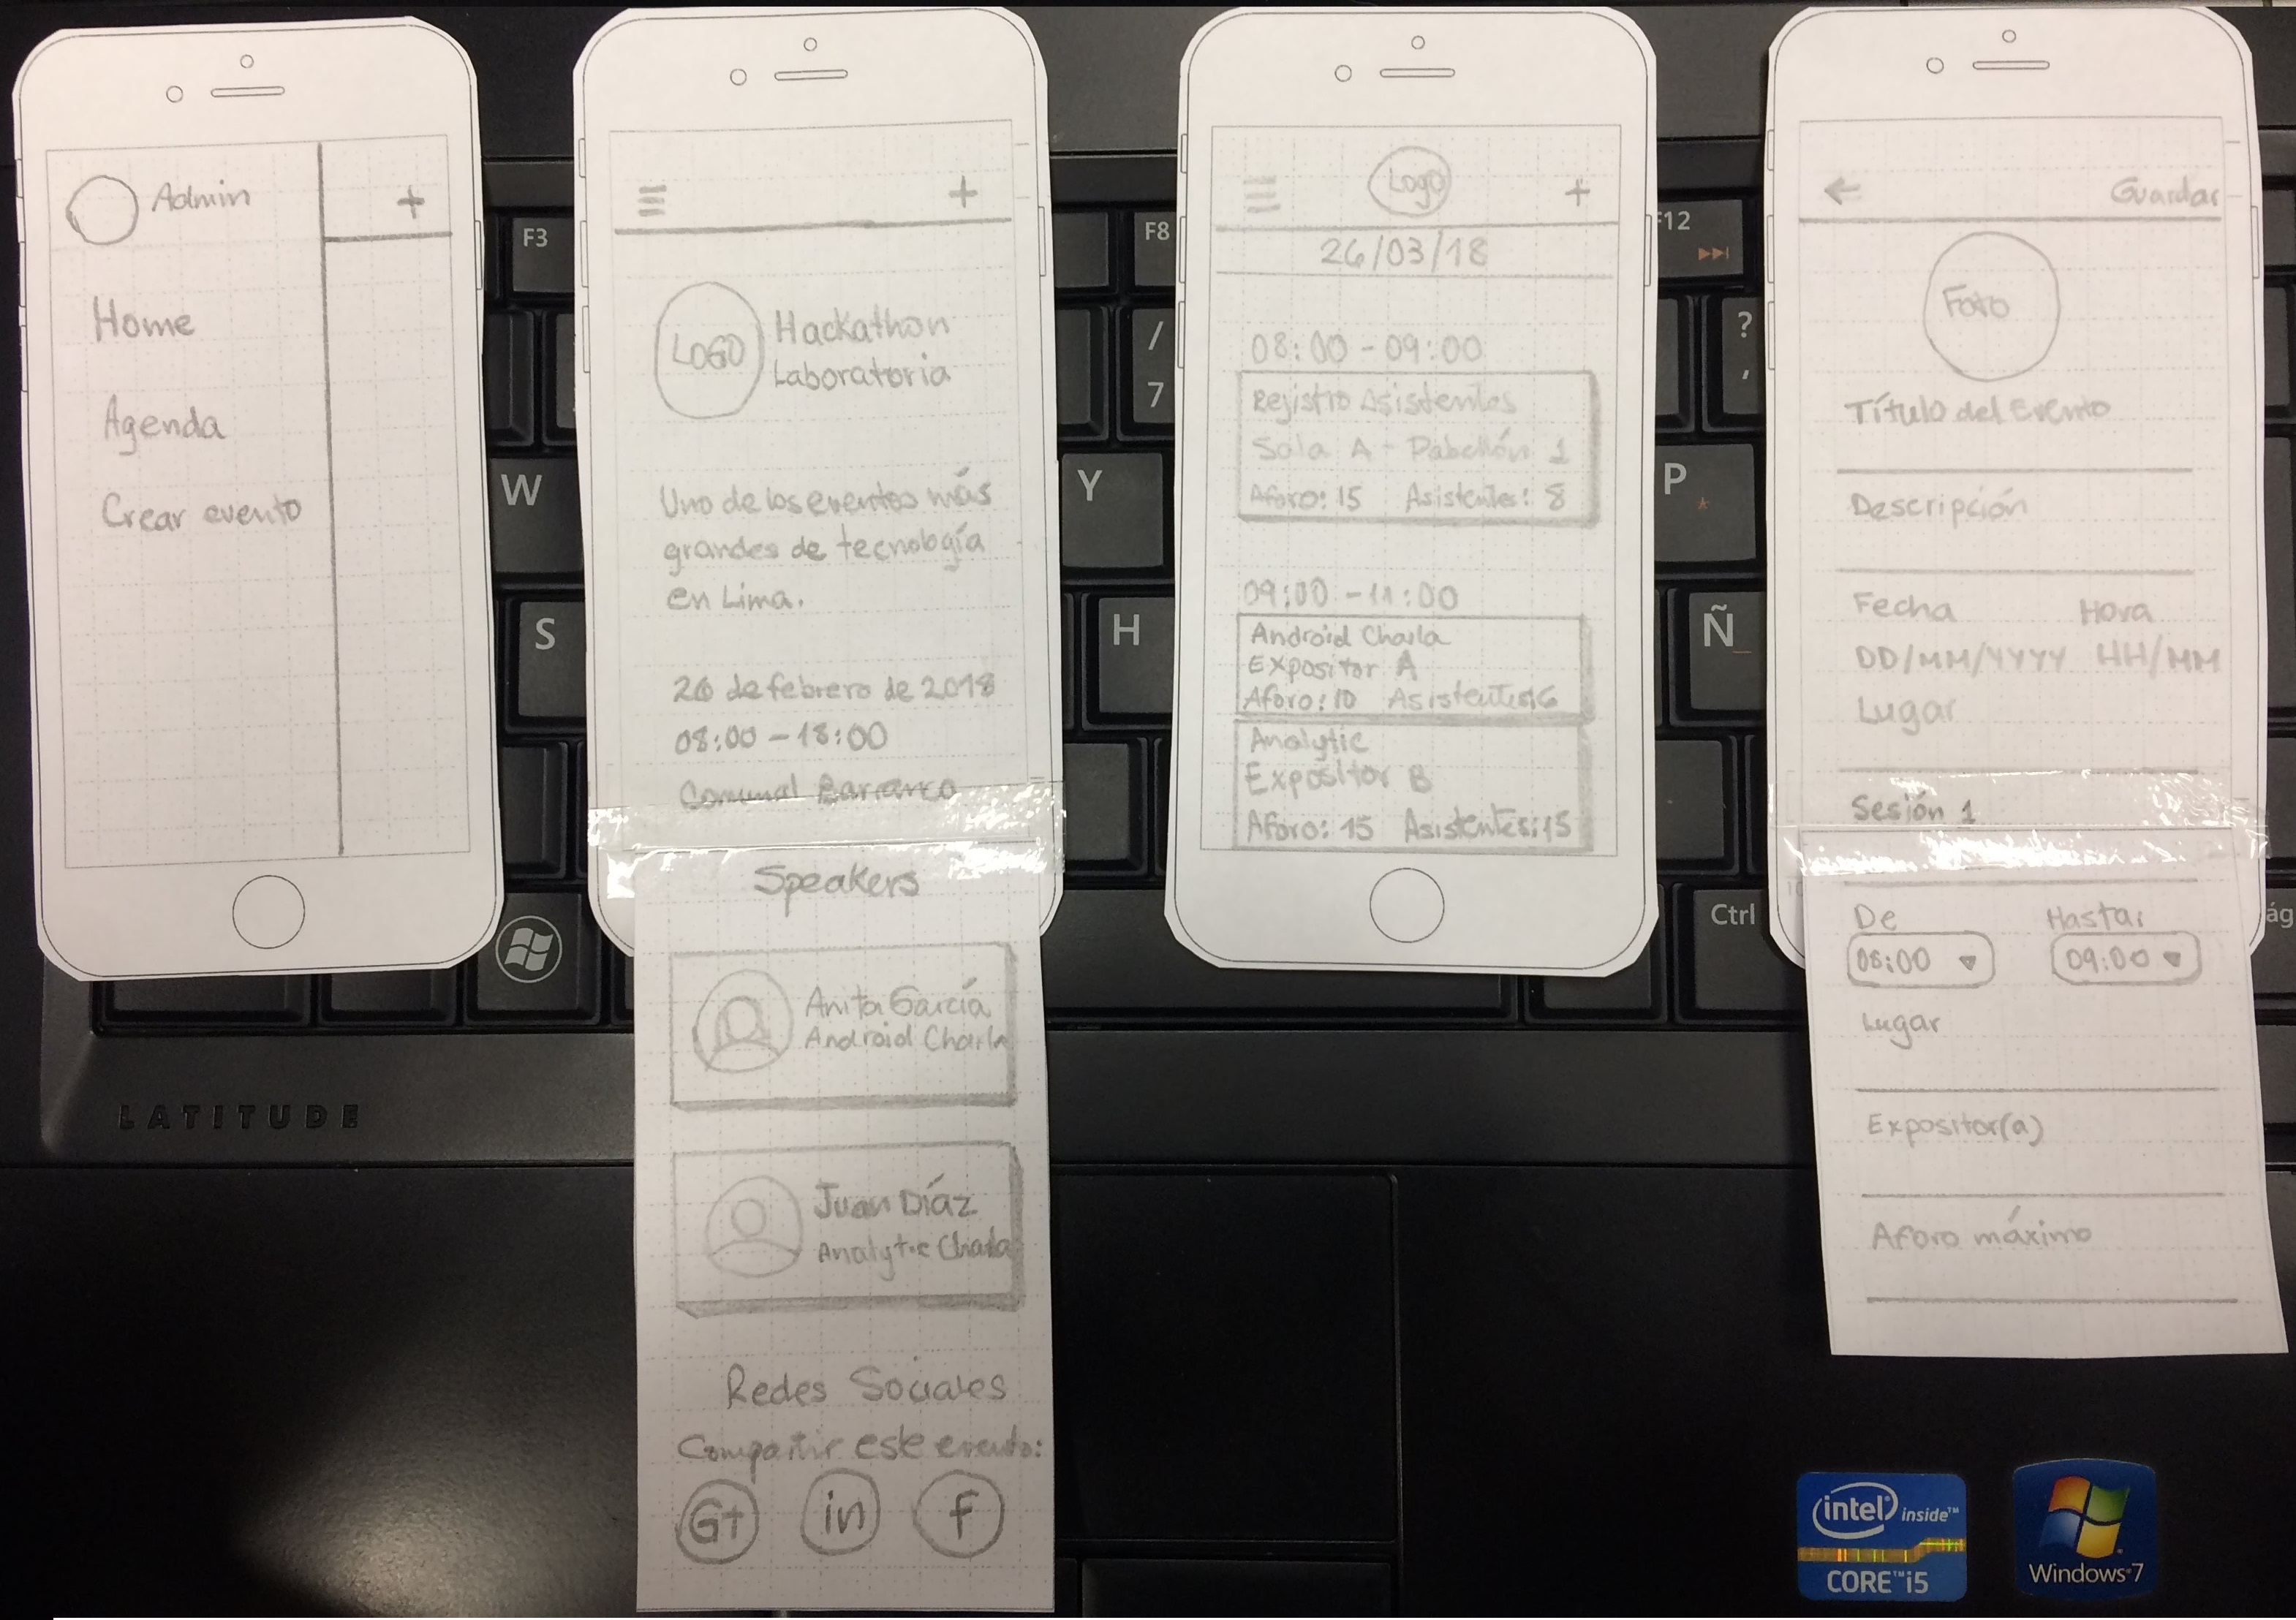 Admin
+
Home
Agenda
Crear evento
+
LOGO
Hackathon
Laboratoria
Uno de los eventos más
grandes de tecnología
en Lima.
26 de febrero de 2018
08:00 - 18:00
Comunal Barranco
Speakers
Anita García
Android Charla
Juan Díaz
Analytic Charla
Redes Sociales
Compartir este evento:
G+ in f
Logo
+
26/03/18
08:00 - 09:00
Rejistro Asistentes
Sala A - Pabellón 1
Aforo: 15 Asistentes: 8
09:00 - 11:00
Android Charla
Expositor A
Aforo: 10 Asistentes:
Analytic
Expositor B
Aforo: 15 Asistentes: 15
← Guardar
Foto
Título del Evento
Descripción
Fecha Hora
DD/MM/YYYY HH/MM
Lugar
Sesión 1
De Hasta:
08:00 09:00
Lugar
Expositor(a)
Aforo máximo
F3
F8
F12
/
7
?
,
W
Y
P
*
S
H
Ñ
Ctrl
ág
LATITUDE
intel inside™
CORE™ i5
Windows 7